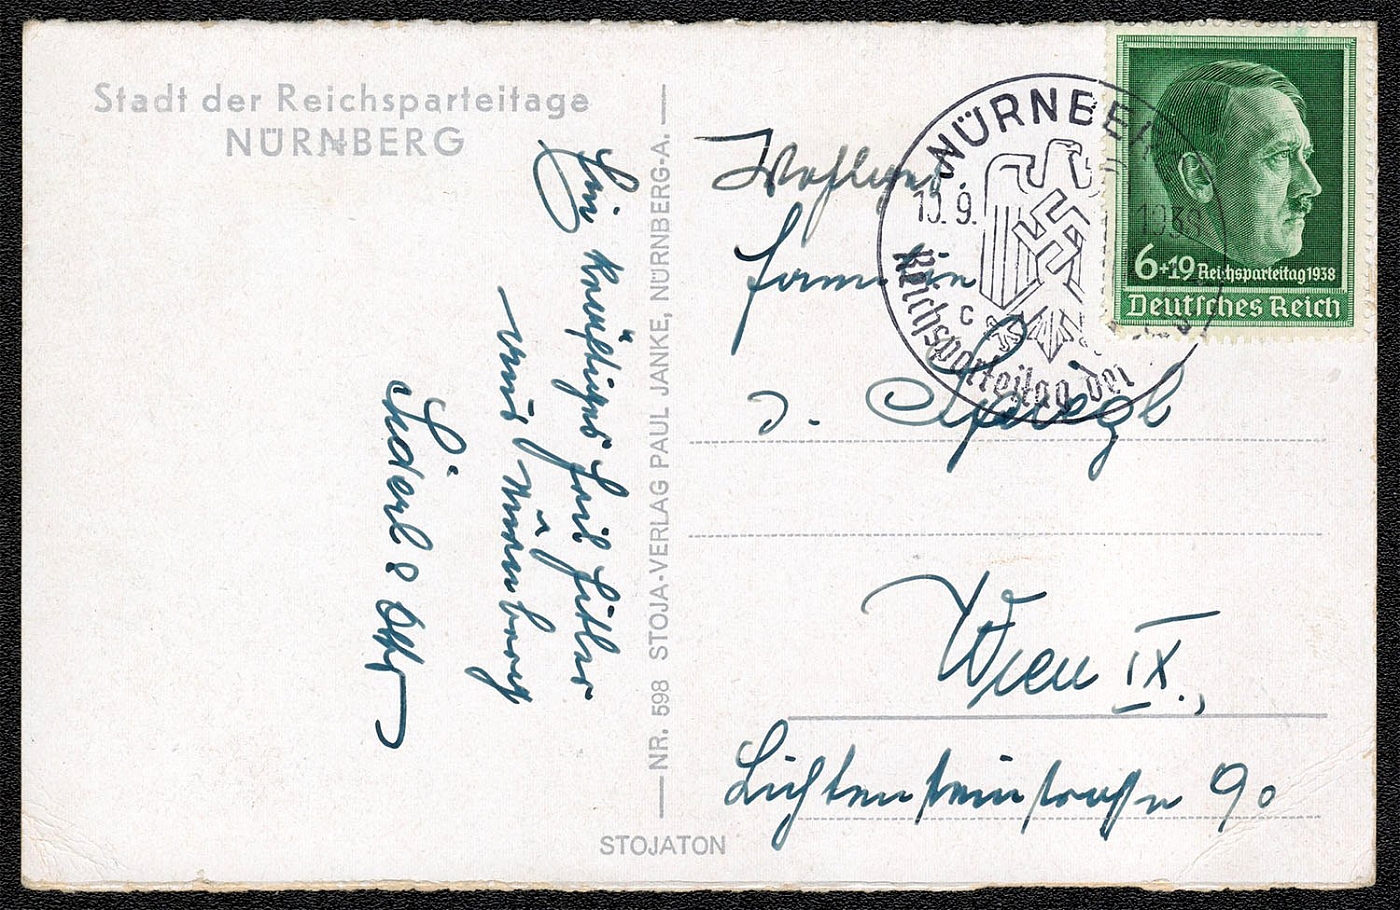 Stadt der Reichsparteitage
NÜRNBERG
Ein kräftiges Heil Hitler
aus Nürnberg
Otto
NR. 598 STOJA-VERLAG PAUL JANKE, NÜRNBERG-A.
STOJATON
NÜRNBERG
9. 1938
c
Reichsparteitag der
6+19 Reichsparteitag 1938
Deutsches Reich
Wohlgeb.
Familie
J. Spiegl
Wien IX.,
Lichtensteinstraße 90